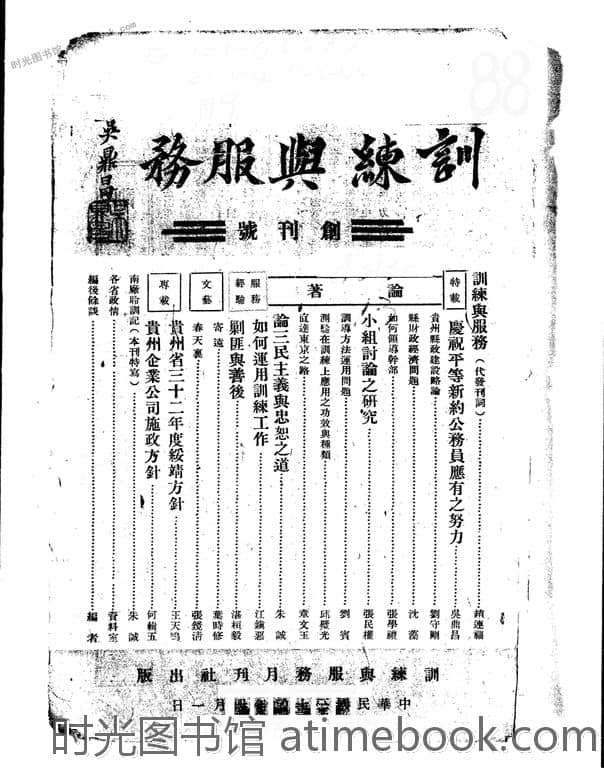 时光图书馆
88
訓練與服務
吳鼎昌
創刊號
訓練與服務(代發刊詞)
特載
慶祝平等新約公務員應有之努力 吳鼎昌
論著
貴州縣政建設略論 劉守剛
縣財政經濟問題 沈
如何領導幹部 張學禮
小組討論之研究 張民權
訓導方法運用問題 劉賓
測驗在訓練上應用之功效與種類 邱璧光
直達東京之路 章文玉
論三民主義與忠恕之道 朱誠
服務經驗
如何運用訓練工作 江
剿匪與善後 湛桓毅
文藝
寄遠 葉時修
春天裏 張鏡清
專載
貴州省三十二年度綏靖方針 王天鳴
貴州企業公司施政方針 何輯五
南廠聆訓記(本刊特寫) 朱誠
各省政情 資料室
編後餘談 編者
訓練與服務月刊社出版
中華民國 月一日
时光图书馆 atimebook.com